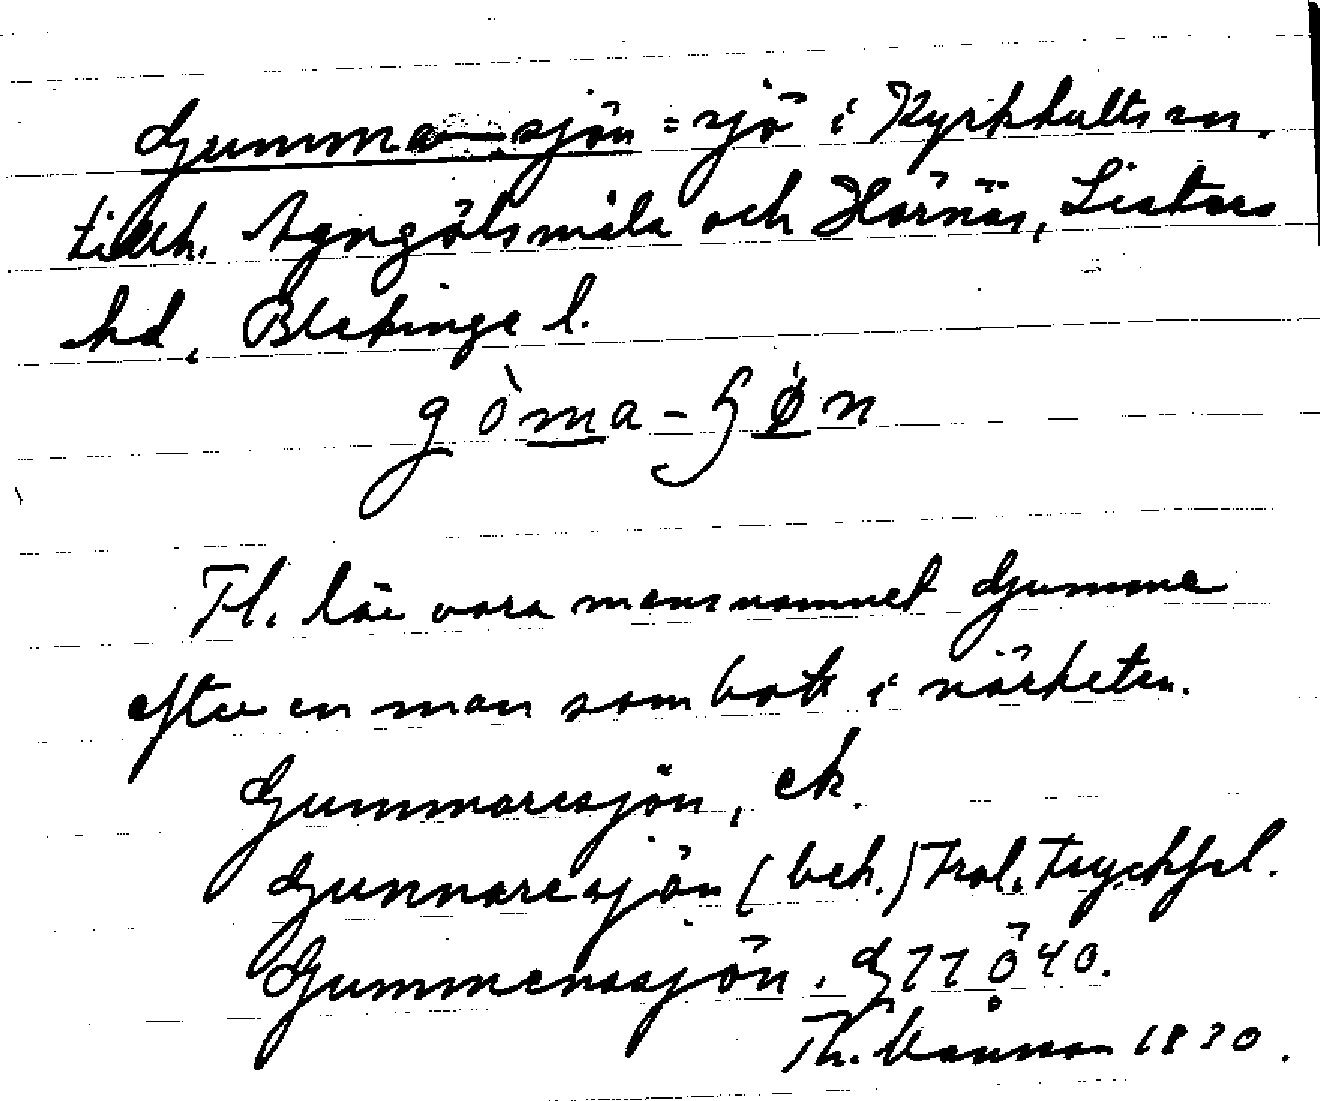 Gumma-sjön = sjö i Kyrkhults sn.
tillh. Agngölsmåla och Hörnäs, Listers
hd, Blekinge l.
gòma-ʃø̀n
Fl. lär vara mansnamnet Gumme
efter en man som bott i närheten.
Gummaresjön, ek.
Gunnaresjön (bek.) Trol. tryckfel.
Gummenssjön. G77Ö40.
Th. 1830.